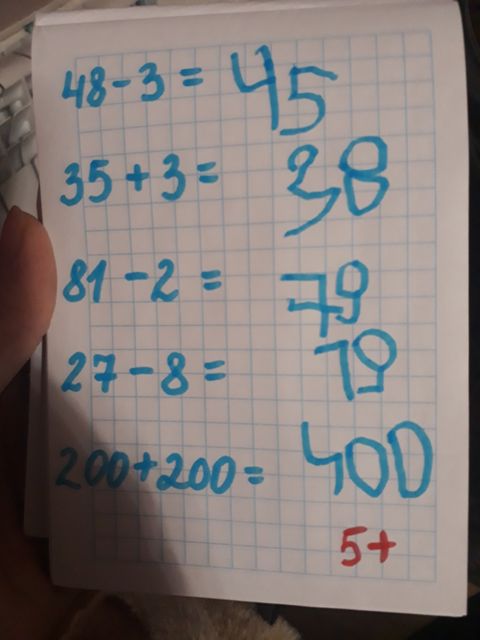 48-3= 45
35+3= 38
81-2= 79
27-8= 19
200+200= 400
5+